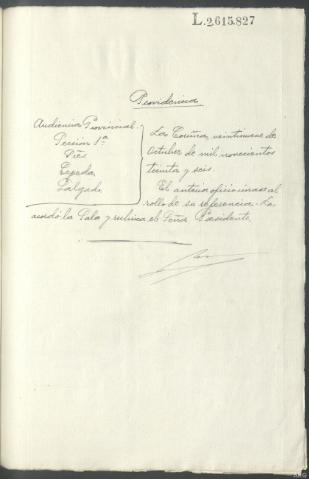 L.2615.827
Providencia
Audiencia Provincial.
Sección 1ª
Pte.
Espada
Salgado
La Coruña, veintinueve de
Octubre de mil novecientos
treinta y seis.
El anterior oficio únase al
rollo de su referencia. Lo
acordó la Sala y rubrica el Señor Presidente